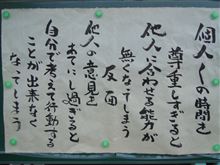 個人〱の時間を
尊重しすぎると
他人に合わせる能力が
無くなってしまう
反面
他人の意見を
あてにし過ぎると
自分で考えて行動する
ことが出来なく
なってしまう